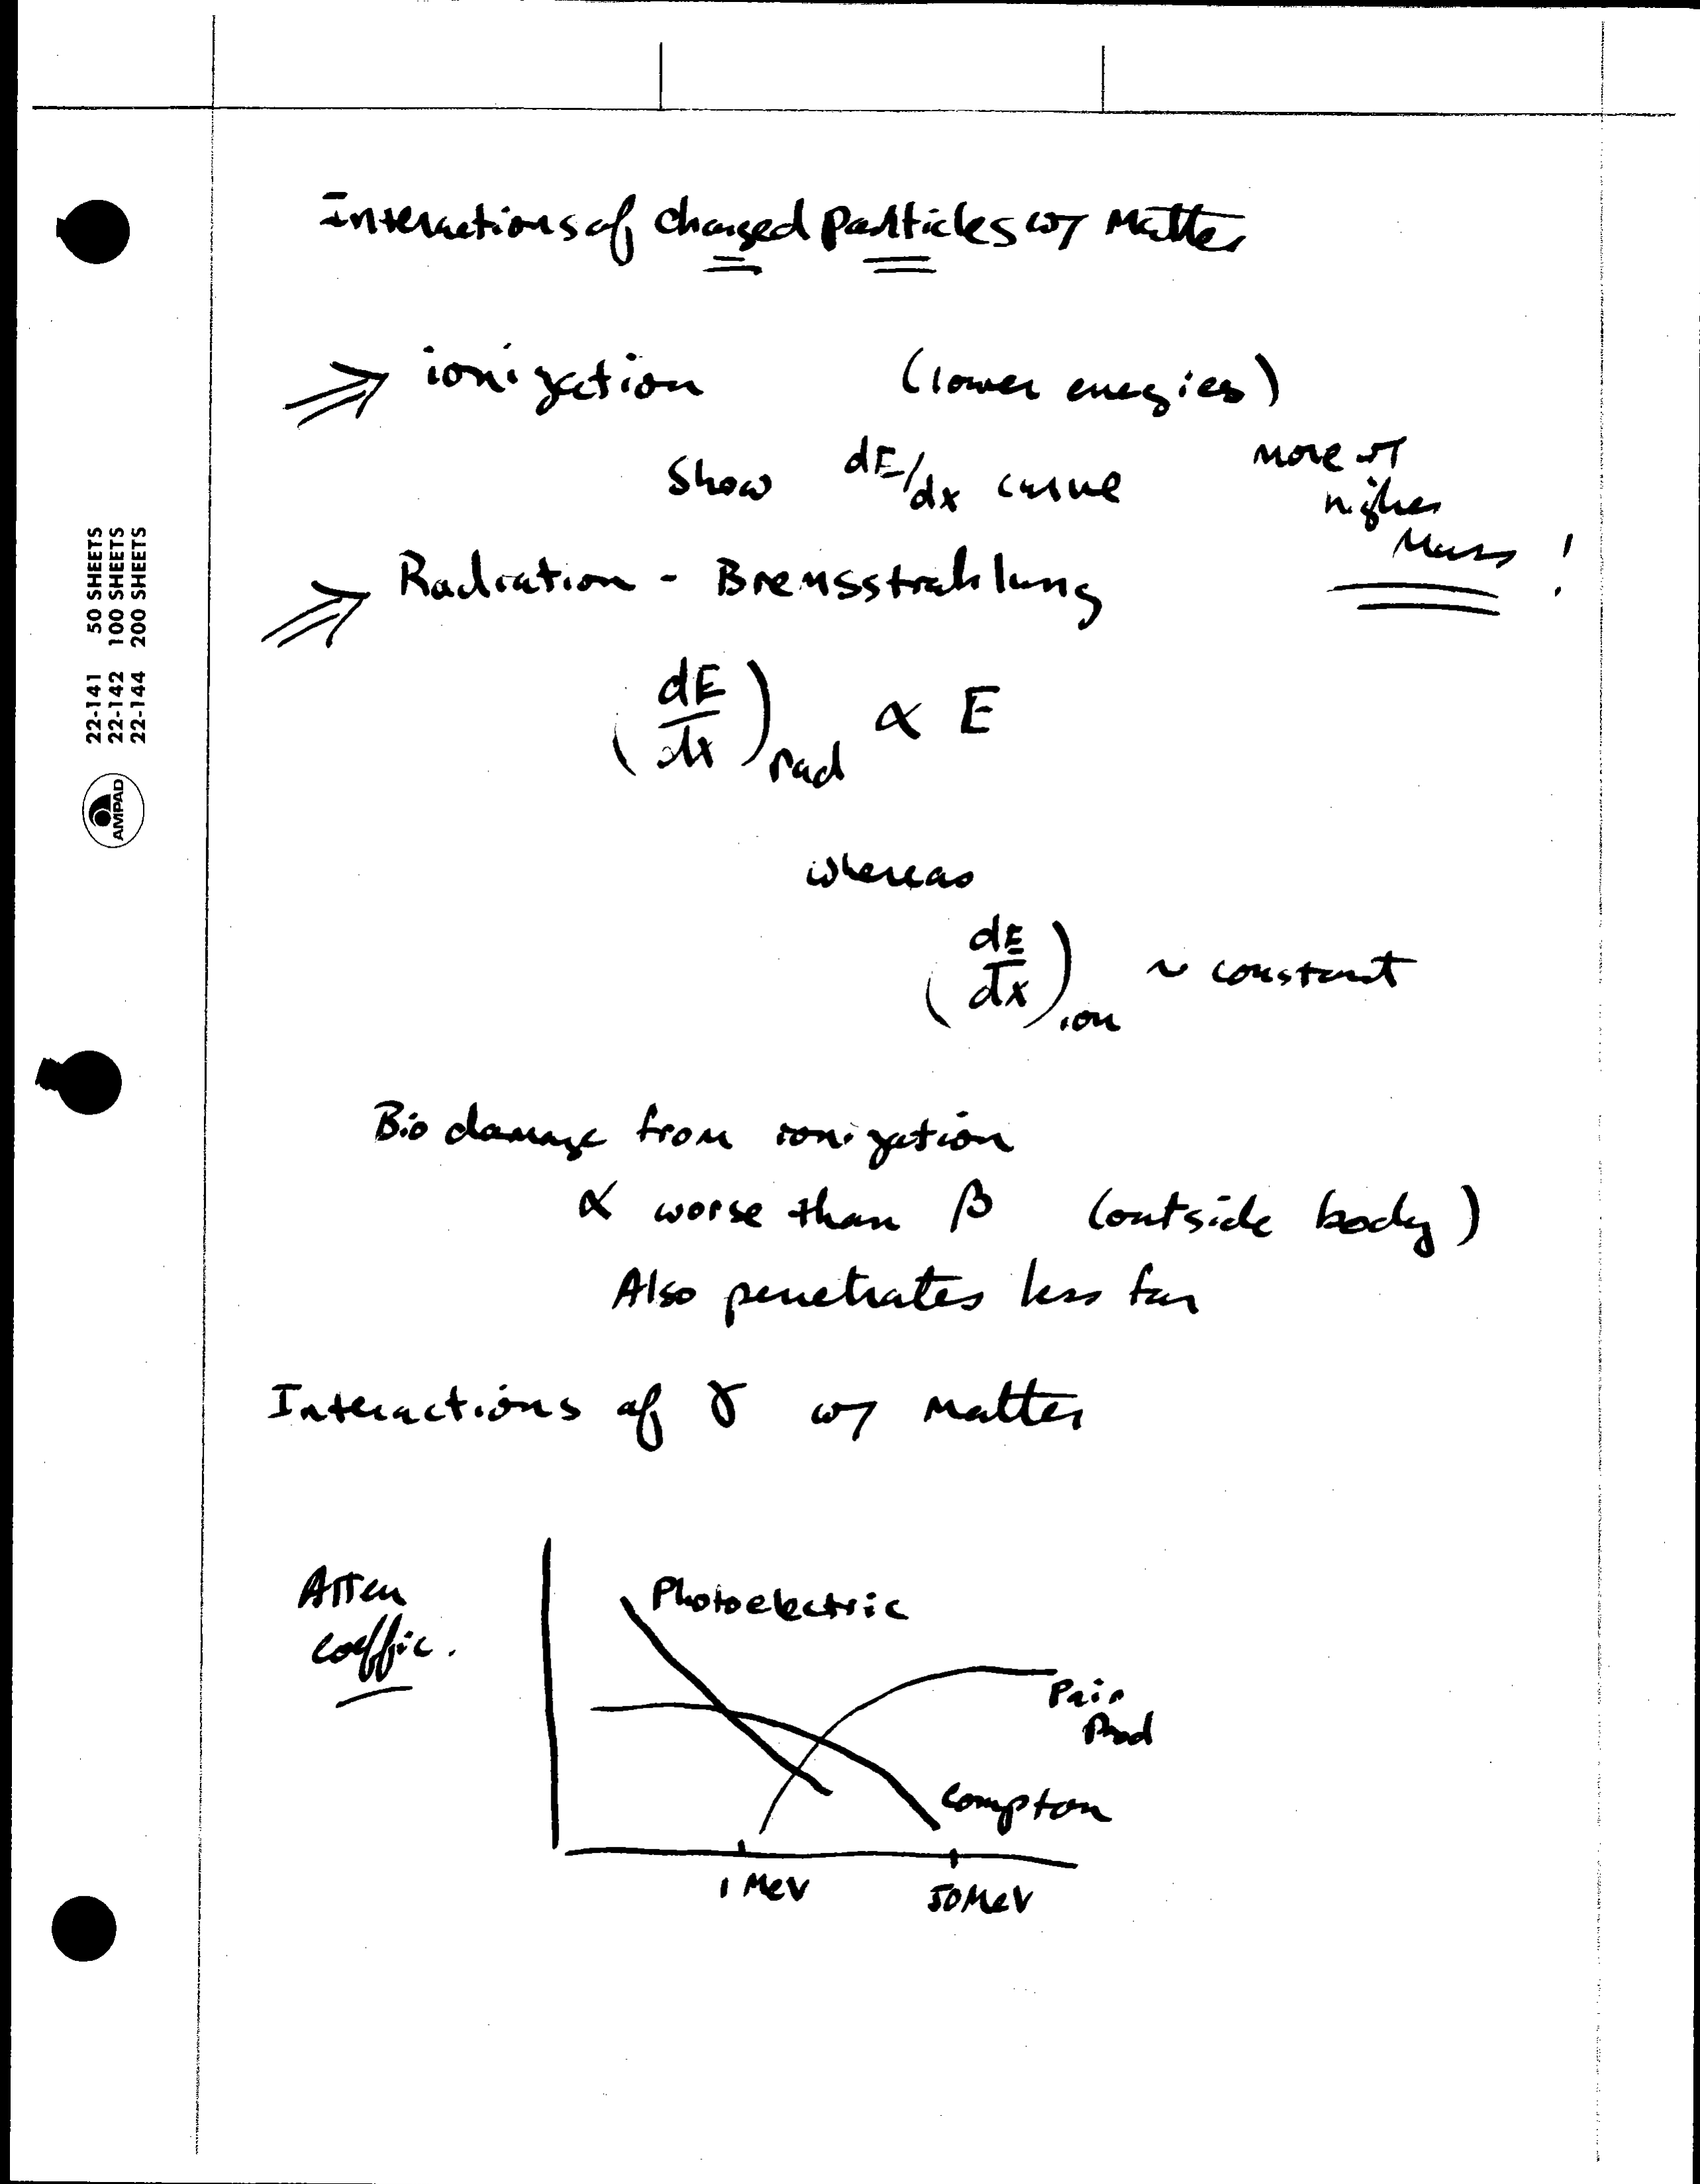 Interactions of Charged Particles w/ Matter
⇒ ionization (lower energies)
Show dE/dx curve
more w/
higher
Mass !
⇒ Radiation - Bremsstrahlung
(dE/dx)rad ∝ E
whereas
(dE/dx)ion ~ constant
Bio damage from ionization
α worse than β (outside body)
Also penetrates less far
Interactions of γ w/ matter
Atten
Coeffic.
Photoelectric
Pair
Prod
Compton
1 MeV
50 MeV
22-141 50 SHEETS
22-142 100 SHEETS
22-144 200 SHEETS
AMPAD